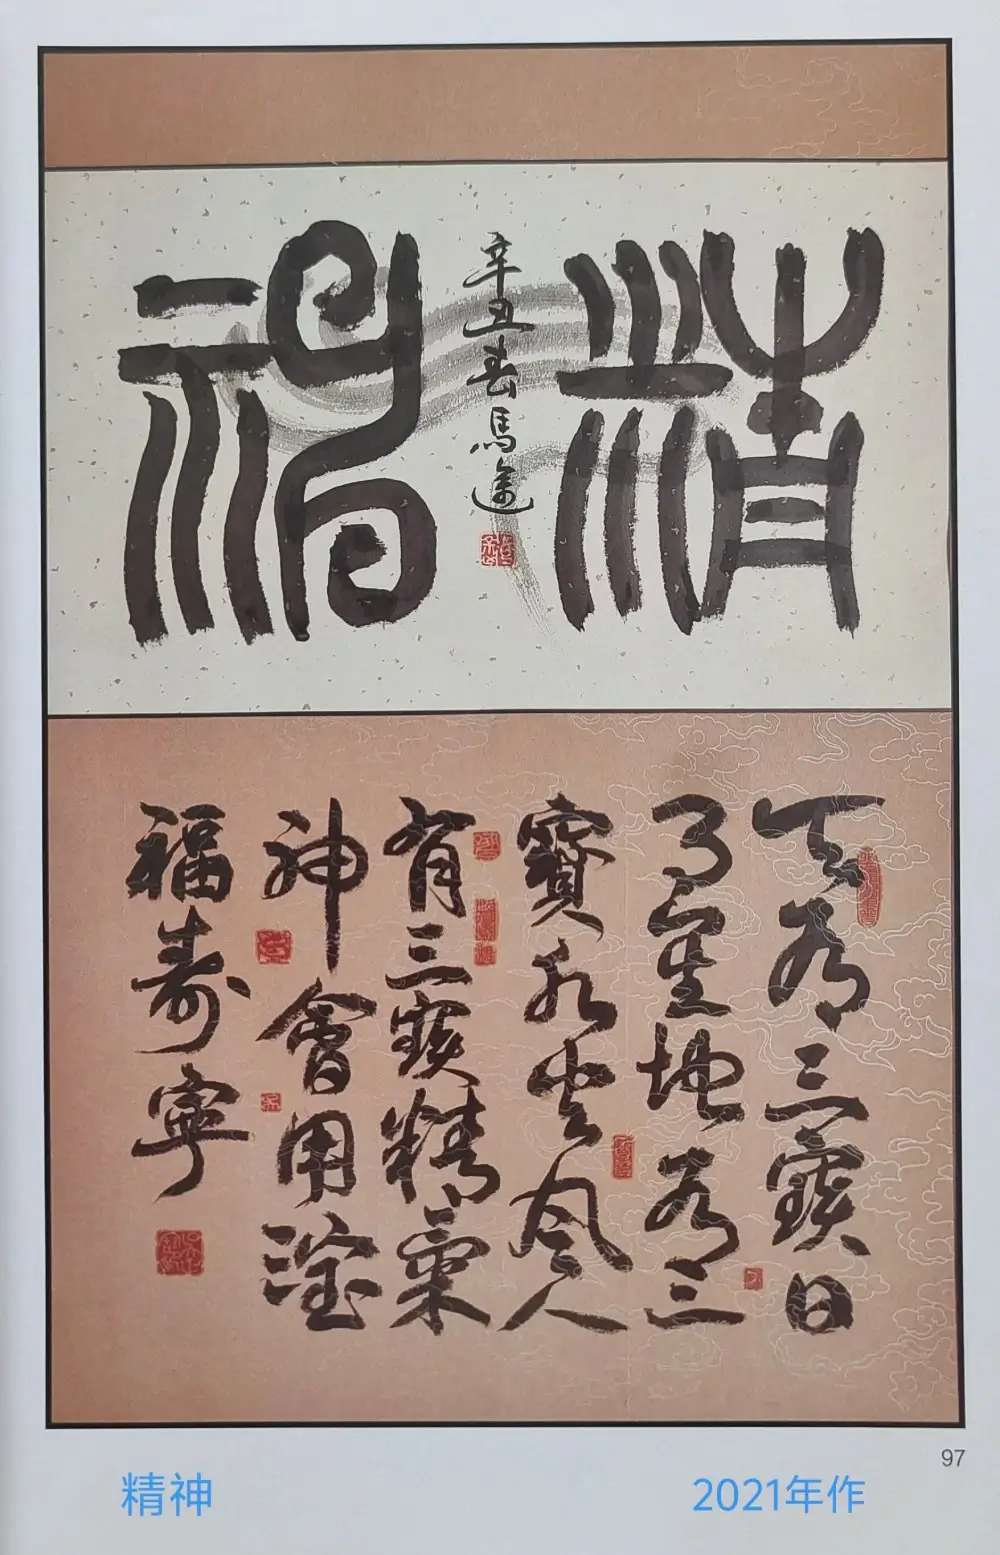 精神
辛丑春馬
天有三寶日
月星地有三
寶水火風人
有三寶精氣
神會用
福壽寧
97
精神 2021年作